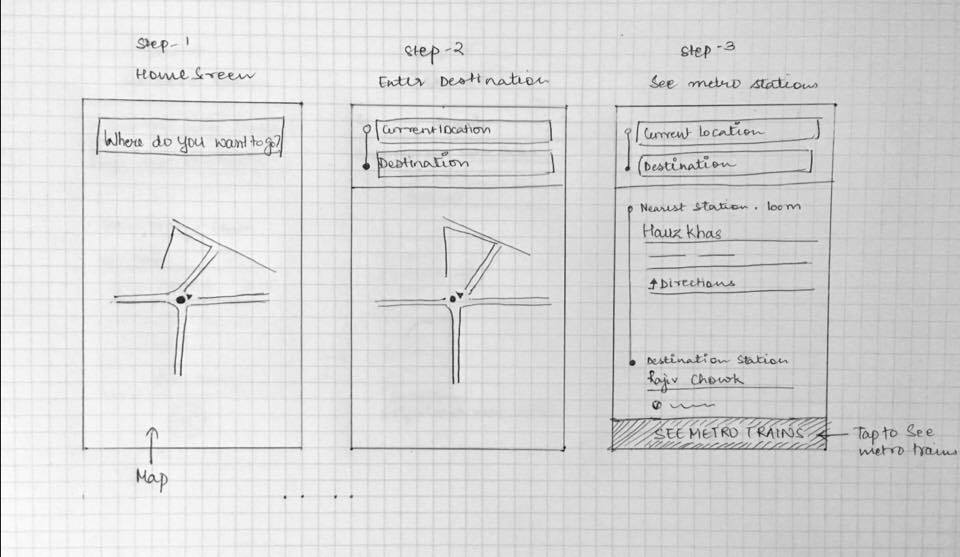 Step-1
Home Screen
Where do you want to go?
Map
Step-2
Enter Destination
Current location
Destination
Step-3
See metro stations
Current location
Destination
Nearest Station. 100m
Hauz Khas
Directions
Destination Station
Rajiv Chowk
SEE METRO TRAINS
Tap to See
metro trains